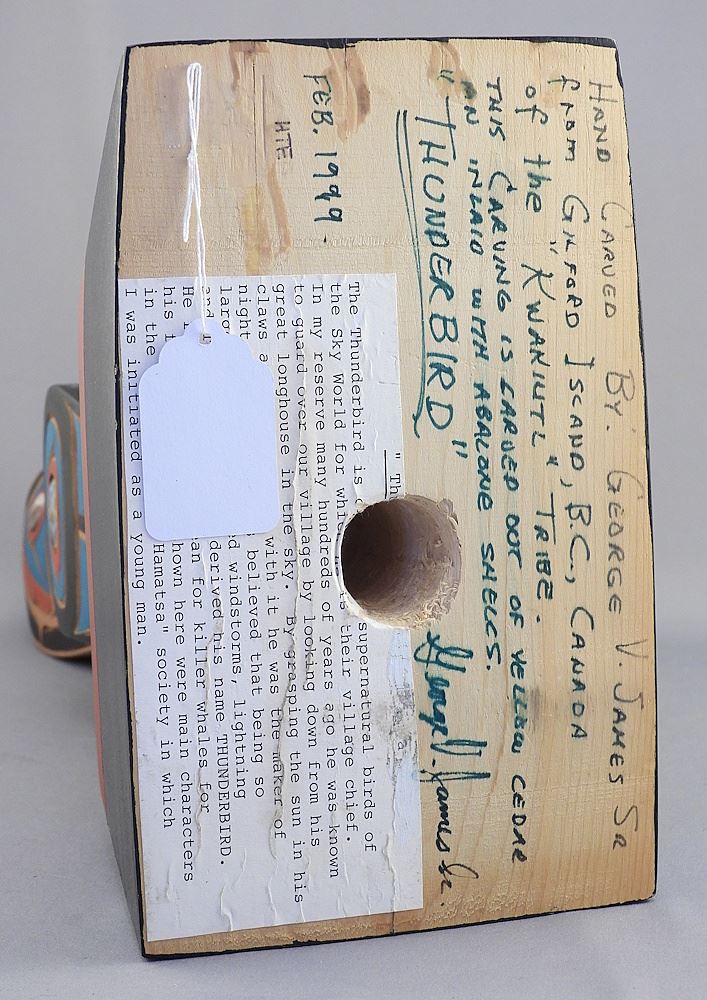 HAND CARVED BY: GEORGE V. JAMES SR
from GILFORD ISLAND, B.C., CANADA
of the "KWANIUTL" TRIBE.
THIS CARVING IS CARVED OUT OF YELLOW CEDAR
AN INLAID WITH ABALONE SHELLS.
"THUNDERBIRD"
George V. James Sr.
FEB. 1999
HTE
"Th
The Thunderbird is supernatural birds of
the Sky World for their village chief.
In my reserve many hundreds of years ago he was known
to guard over our village by looking down from his
great longhouse in the sky. By grasping the sun in his
claws with it he was the maker of
night believed that being so
windstorms, lightning
and derived his name THUNDERBIRD.
He for killer whales for
his hown here were main characters
in the Hamatsa" society in which
I was initiated as a young man.